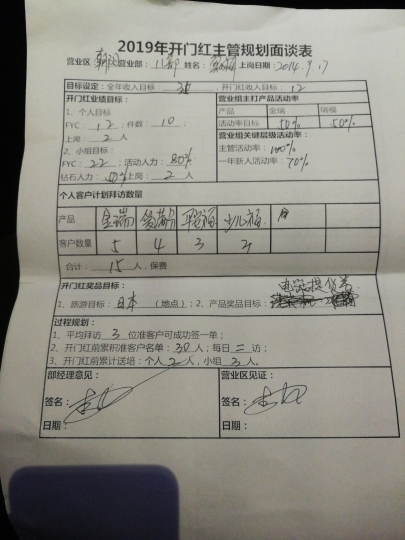 2019年开门红主管规划面谈表
营业区 朝阳 营业部: 八部 姓名: 上尚日期: 2014.9.17
目标设定: 全年收入目标: 30 , 开门红收入目标: 12
开门红业绩目标: 营业组主打产品活动率
1、个人目标 产品 金瑞 瑞福
FYC: 12 ; 件数: 10 ; 活动率目标 50% 50%
上岗: 2 人 营业组关键层级活动率:
2、小组目标: 主管活动率: 100%
FYC: 22 ; 活动人力: 80% 一年新人活动率: 70%
钻石人力: 50% 上岗: 2 人
个人客户计划拜访数量
产品 金瑞 平安福 少儿福
客户数量 5 4 3 3
合计: 15 人, 保费
开门红奖品目标:
1、旅游目标: 日本 (地点); 2、产品奖品目标:
过程规划:
1、平均拜访 3 位准客户可成功签一单;
2、开门红前累积准客户名单: 30 人; 每日 二 访;
3、开门红前累计送培: 个人 2 人, 小组 3 人。
部经理意见: 营业区见证:
签名: 签名:
日期: 日期: